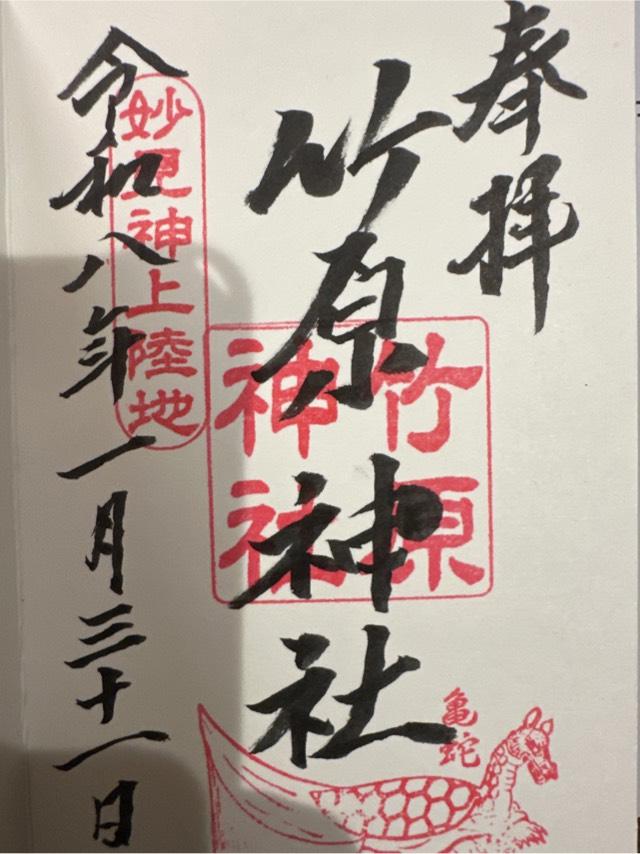 奉拝
竹原神社
竹原
神社
亀蛇
令和八年一月三十一日
妙見神上陸地